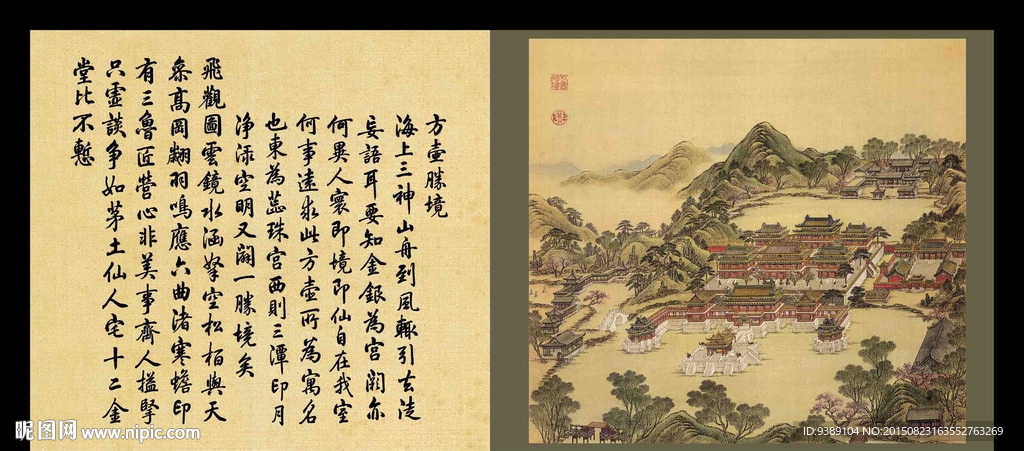 方壺勝境
海上三神山舟到風輒引去徒
妄語耳要知金銀為宮闕亦
何異人寰即境即仙自在我室
何事遠求此方壺所為寓名
也東為蕊珠宮西則三潭印月
淨淥空明又闢一勝境矣
飛觀圖雲鏡水涵拏空松栢與天
叅高岡翽羽鳴應六曲渚寒蟾印
有三魯匠營心非美事齊人搤掔
只虛談争如茅土仙人宅十二金
堂比不慙
昵图网 www.nipic.com
ID:9389104 NO:20150823163552763269